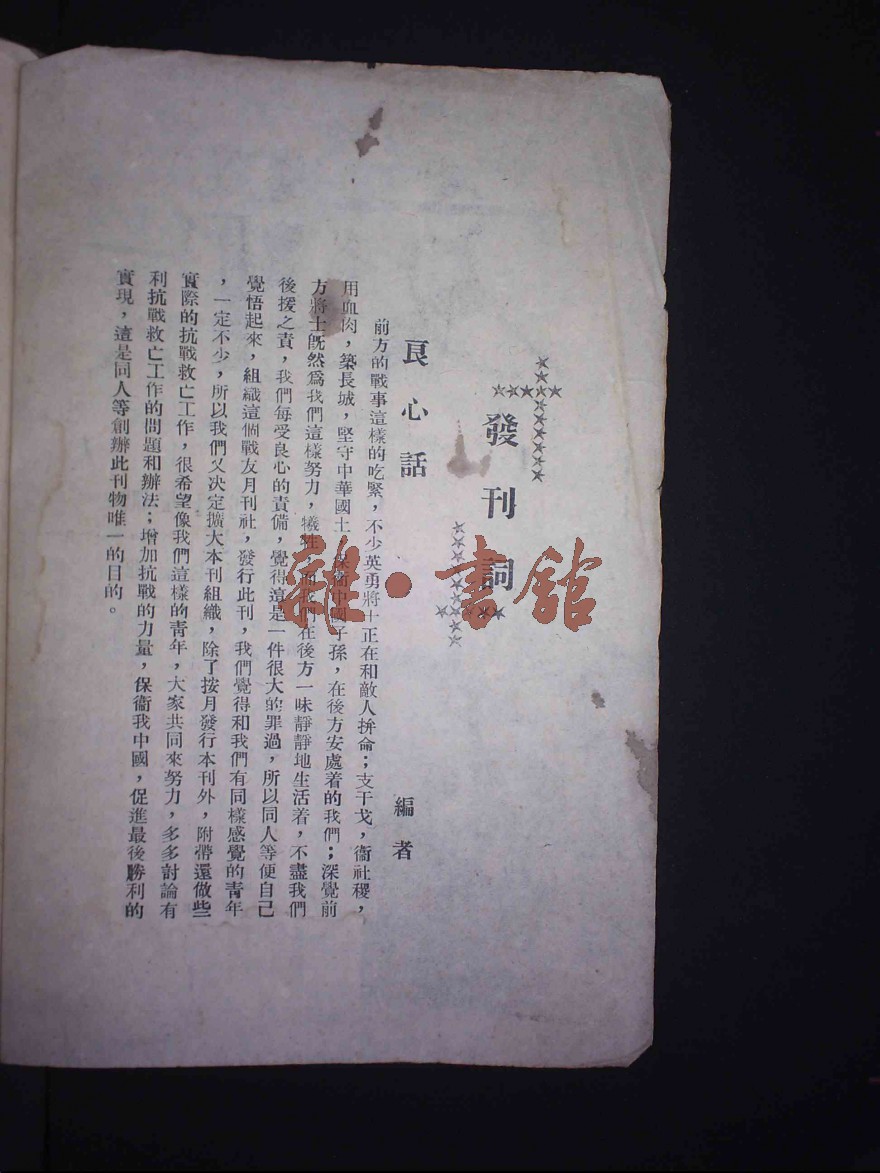 發刊詞
良心話
編者
前方的戰事這樣的吃緊，不少英勇將士正在和敵人拚命；支干戈，衞社稷，
用血肉，築長城，堅守中華國土，保衞中國子孫，在後方安處着的我們；深覺前
方將士旣然爲我們這樣努力，犧牲，而我們在後方一味靜靜地生活着，不盡我們
後援之責，我們每受良心的責備，覺得這是一件很大的罪過，所以同人等便自己
覺悟起來，組織這個戰友月刊社，發行此刊，我們覺得和我們有同樣感覺的青年
，一定不少，所以我們又決定擴大本刊組織，除了按月發行本刊外，附帶還做些
實際的抗戰救亡工作，很希望像我們這樣的青年，大家共同來努力，多多討論有
利抗戰救亡工作的問題和辦法；增加抗戰的力量，保衞我中國，促進最後勝利的
實現，這是同人等創辦此刊物唯一的目的。
雜·書館